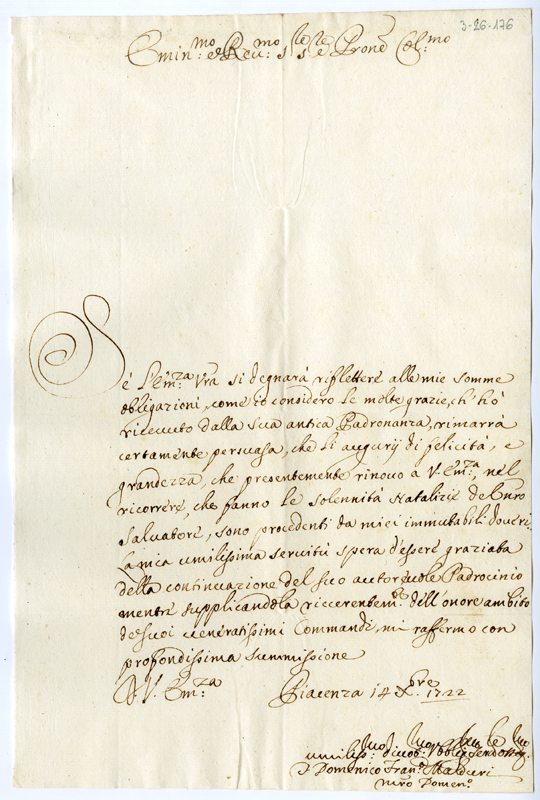 3-26-176
Emin.mo e Rev.mo Sig.re Sig.re e Prone Col.mo
Se l'Em.za Vra si degnarà riflettere alle mie somme
obligazioni, come io considero le molte grazie, ch'hò
ricevuto dalla sua antica Padronanza, rimarrà
certamente persuasa, che li augurij di felicità, e
grandezza, che presentemente rinovo a V. Em.za, nel
ricorrere, che fanno le solennità Natalizie del nro
Salvatore, sono procedenti da miei immutabili doveri.
La mia umilissima servitù spera d'essere graziata
della continuazione del suo autorevole Padrocinio
mentre supplicandola riverentem.te dell'onore ambito
de suoi veneratissimi Commandi, mi raffermo con
profondissima summissione
D. V. Em.za Piacenza 14 Xbre 1722
umiliss.mo divot.mo obblig.mo
Domenico Fran.co